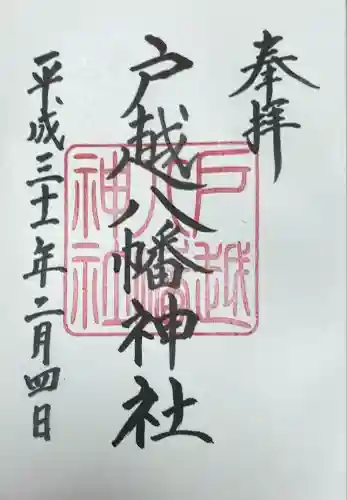 奉拝
戸越八幡神社
戸越八幡神社
平成三十一年二月四日